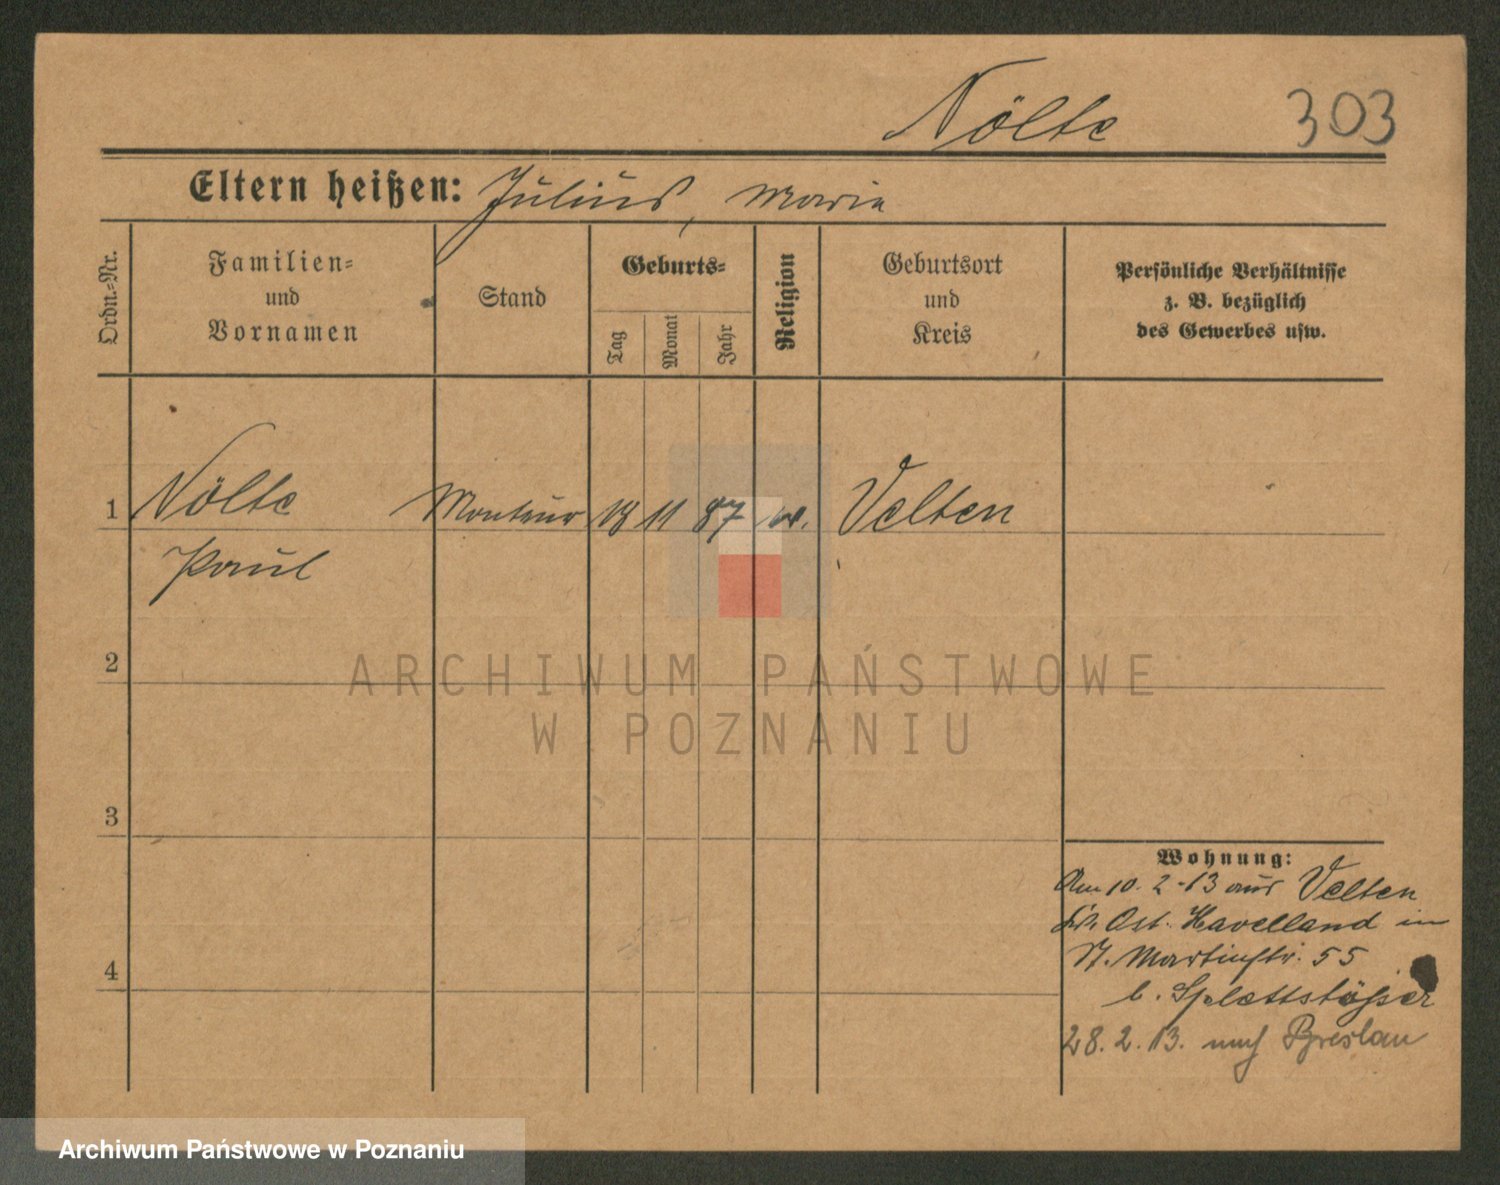 Nölte 303
Eltern heißen: Julius, Maria
Ordn.-Nr.
Familien-
und
Vornamen
Stand
Geburts-
Tag
Monat
Jahr
Religion
Geburtsort
und
Kreis
Persönliche Verhältnisse
z. B. bezüglich
des Gewerbes usw.
1 Nölte Monteur 13 11 87 ev. Velten
Paul
2
3
4
Wohnung:
Am 10.2.13 aus Velten
Kr. Ost. Havelland in
St. Martinstr. 55
b. Splettstößer
28.2.13. nach Breslau
ARCHIWUM PAŃSTWOWE
W POZNANIU
Archiwum Państwowe w Poznaniu